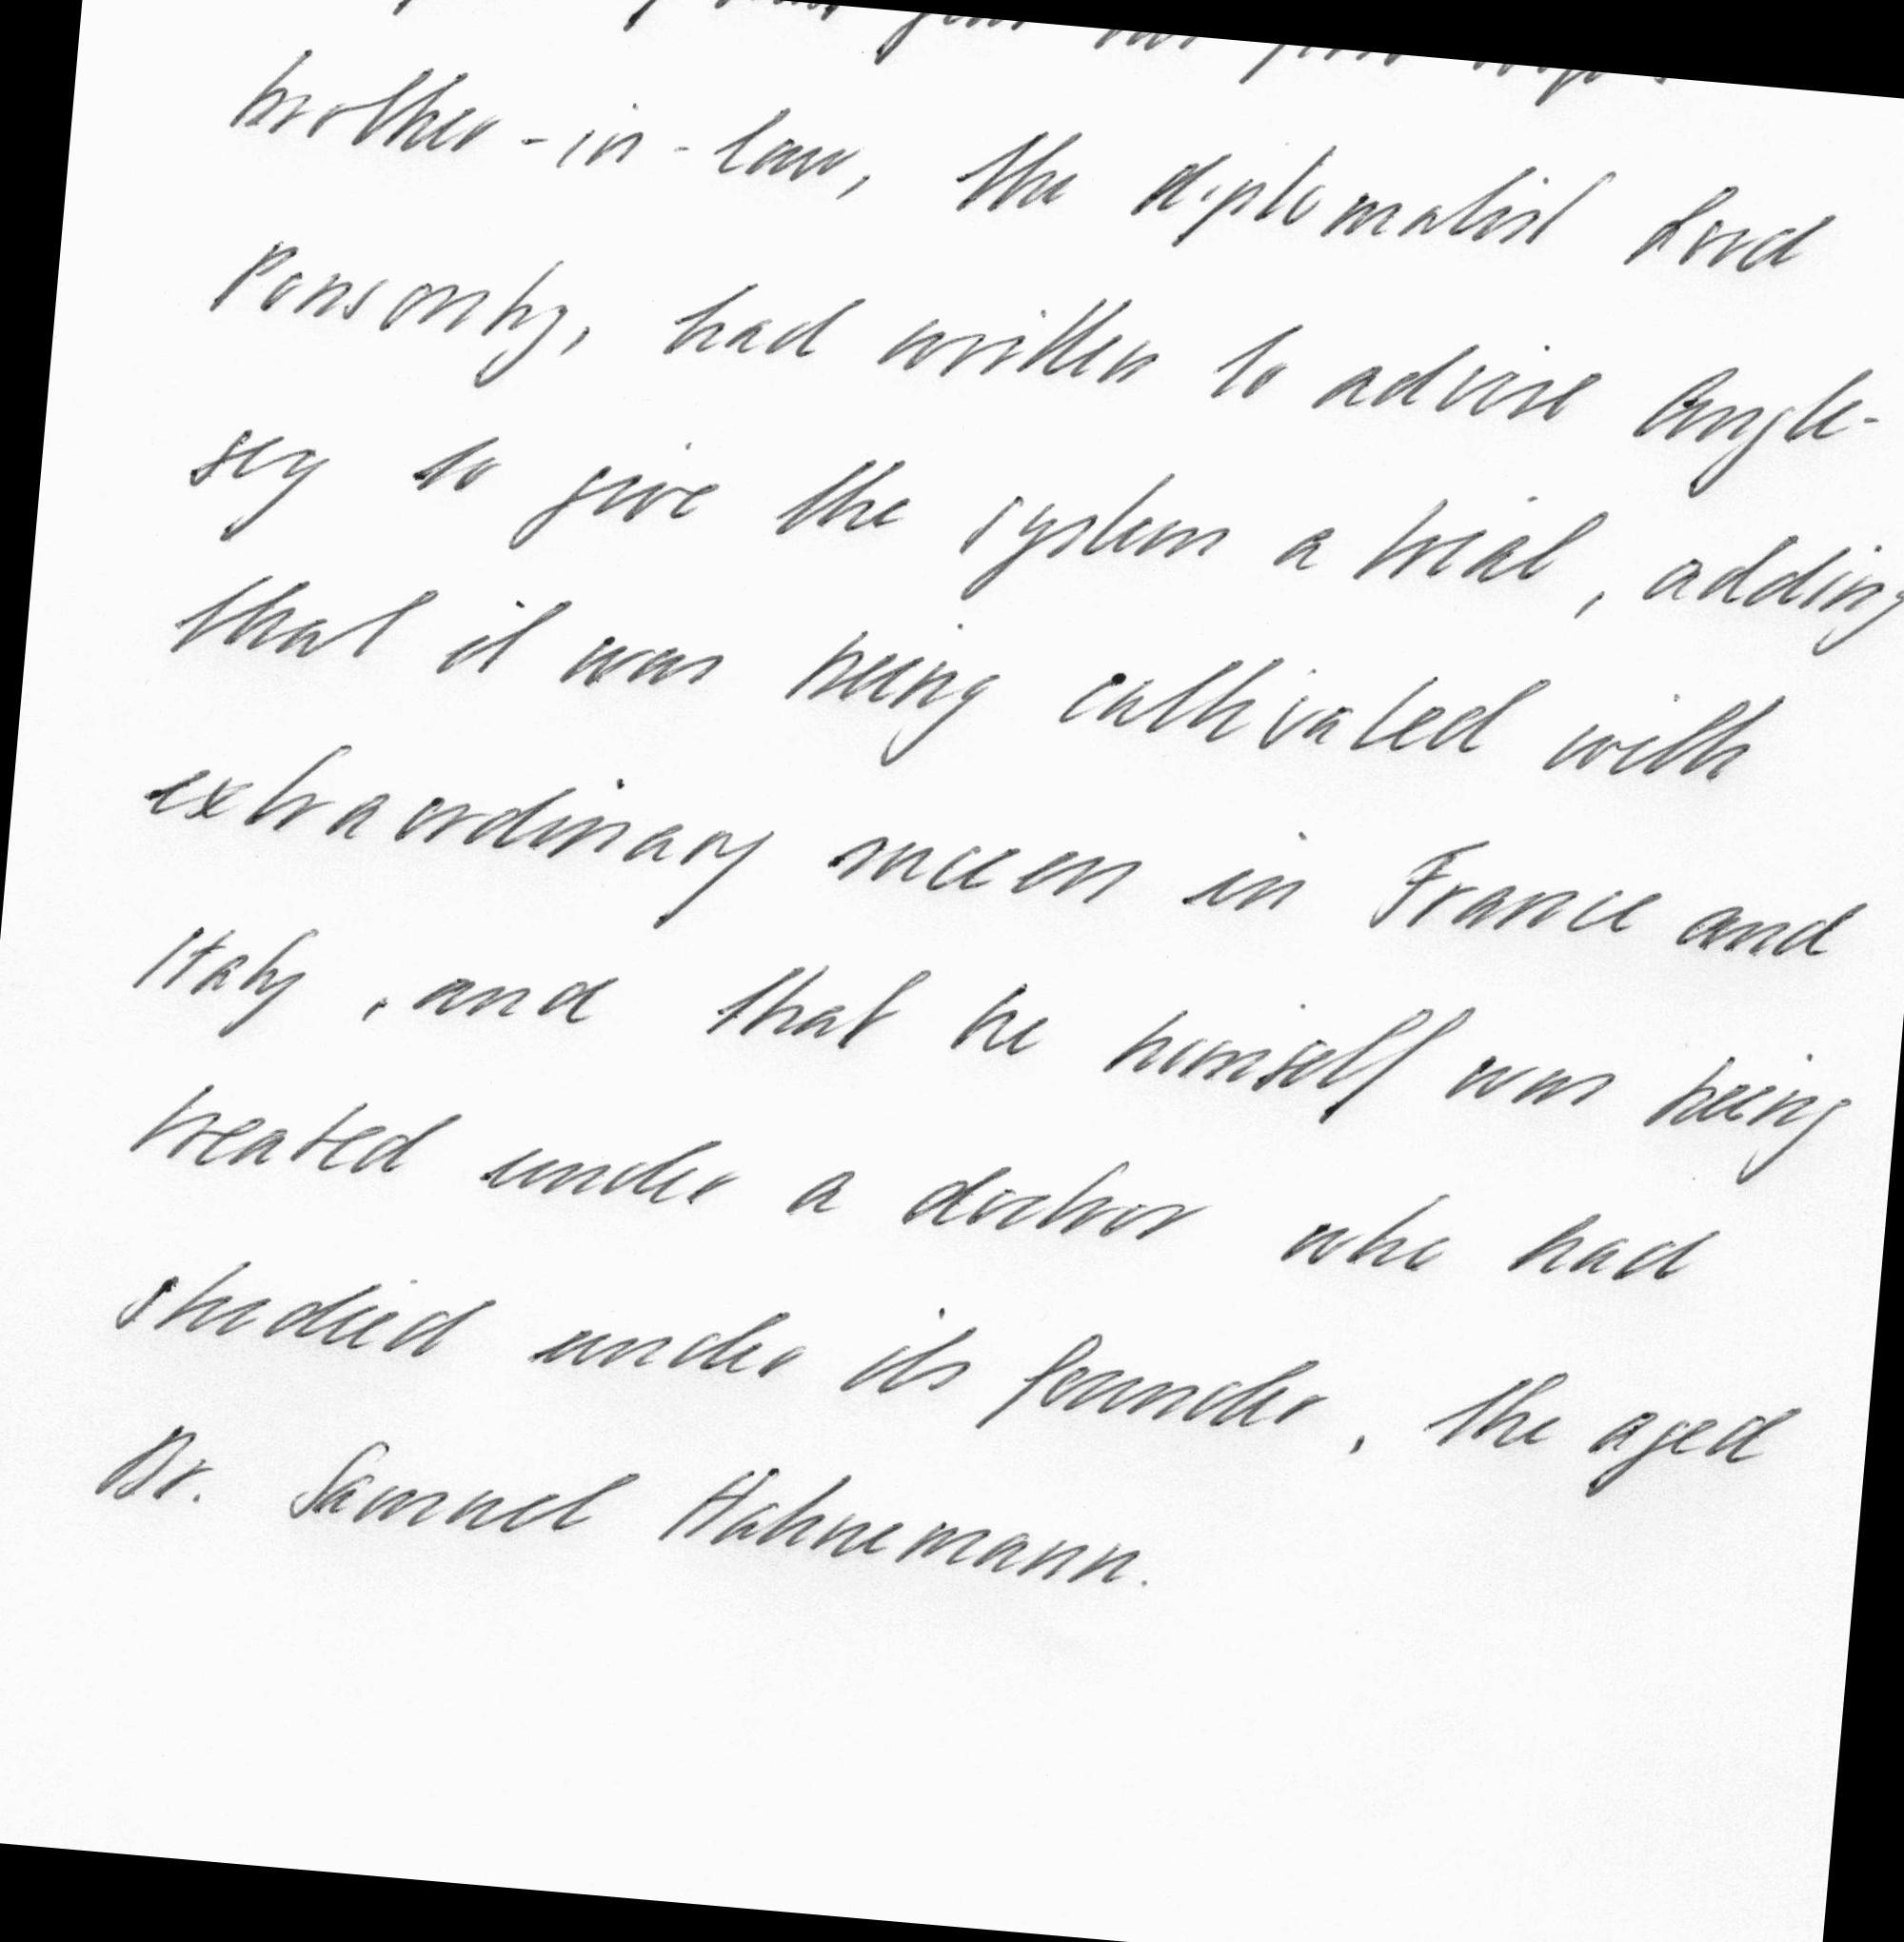 brother-in-law, the diplomatist Lord
Ponsonby, had written to advise Angle-
sey to give the system a trial, adding
that it was being cultivated with
extraordinary success in France and
Italy, and that he himself was being
treated under a doctor who had
studied under its founder, the aged
Dr. Samuel Hahnemann.